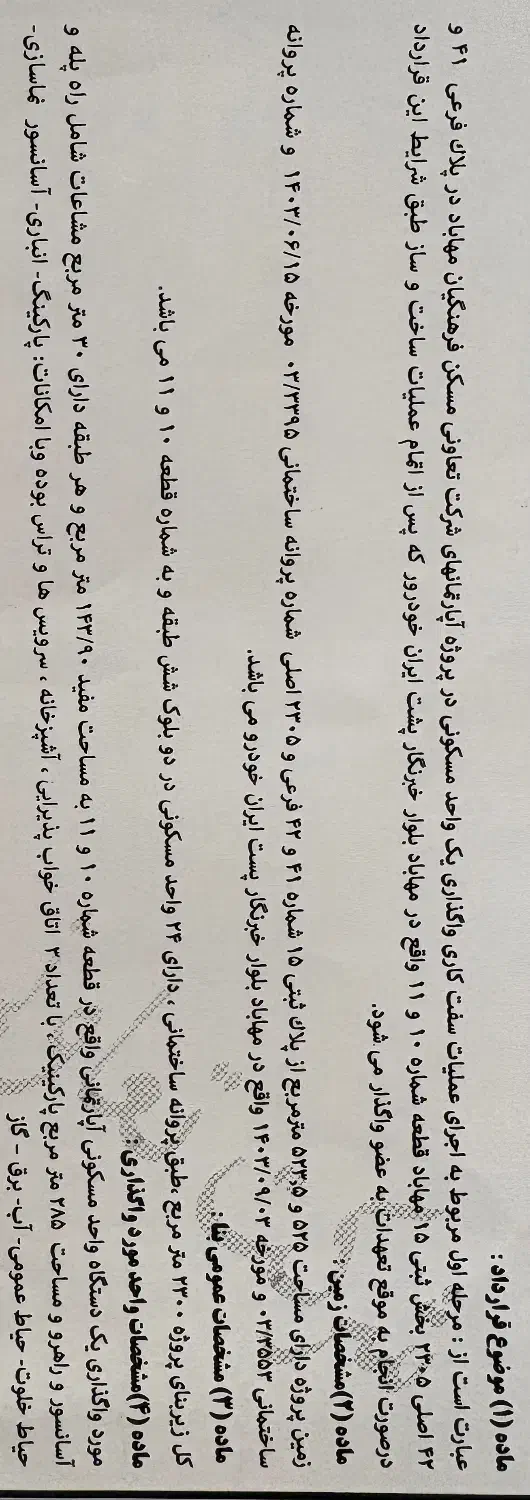 ماده (۱) موضوع قرارداد :
عبارت است از : مرحله اول مربوط به اجرای عملیات سفت کاری واگذاری یک واحد مسکونی در پروژه آپارتمانهای شرکت تعاونی مسکن فرهنگیان مهاباد در پلاک فرعی ۴۱ و
۴۲ اصلی ۲۳۰۵ بخش ثبتی ۱۵ مهاباد قطعه شماره ۱۰ و ۱۱ واقع در مهاباد بلوار خبرنگار پشت ایران خودرور که پس از اتمام عملیات ساخت و ساز طبق شرایط این قرارداد
درصورت انجام به موقع تعهدات به عضو واگذار می شود.
ماده (۲)مشخصات زمین :
زمین پروژه دارای مساحت ۵۲۵ و ۵۲۳.۵ مترمربع از پلاک ثبتی ۱۵ شماره ۴۱ و ۴۲ فرعی و ۲۳۰۵ اصلی شماره پروانه ساختمانی ۰۳/۳۳۹۵ مورخه ۱۴۰۳/۰۶/۱۵ و شماره پروانه
ساختمانی ۰۳/۳۵۵۳ و مورخه ۱۴۰۳/۰۹/۰۳ واقع در مهاباد بلوار خبرنگار پست ایران خودرو می باشد.
ماده (۳) مشخصات عمومی بنا :
کل زیربنای پروژه ۲۳۰۰ متر مربع ،طبق پروانه ساختمانی ، دارای ۲۴ واحد مسکونی در دو بلوک شش طبقه و به شماره قطعه ۱۰ و ۱۱ می باشد.
ماده (۴)مشخصات واحد مورد واگذاری :
مورد واگذاری یک دستگاه واحد مسکونی آپارتمانی واقع در قطعه شماره ۱۰ و ۱۱ به مساحت مفید ۱۴۳/۹۰ متر مربع و هر طبقه دارای ۳۰ متر مربع مشاعات شامل راه پله و
آسانسور و راهرو و مساحت ۲۸۵ متر مربع پارکینیک ، با تعداد ۳ اتاق خواب پذیرایی ، آشپزخانه ، سرویس ها و تراس بوده وبا امکانات: پارکینگ- انباری- آسانسور نماسازی-
حیاط خلوت- حیاط عمومی- آب- برق - گاز